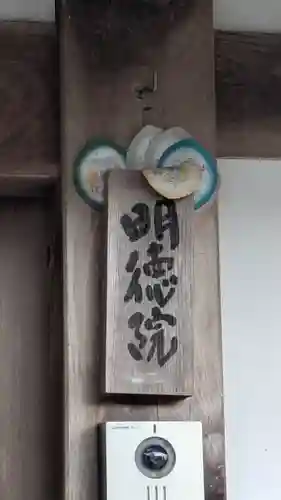 明徳院